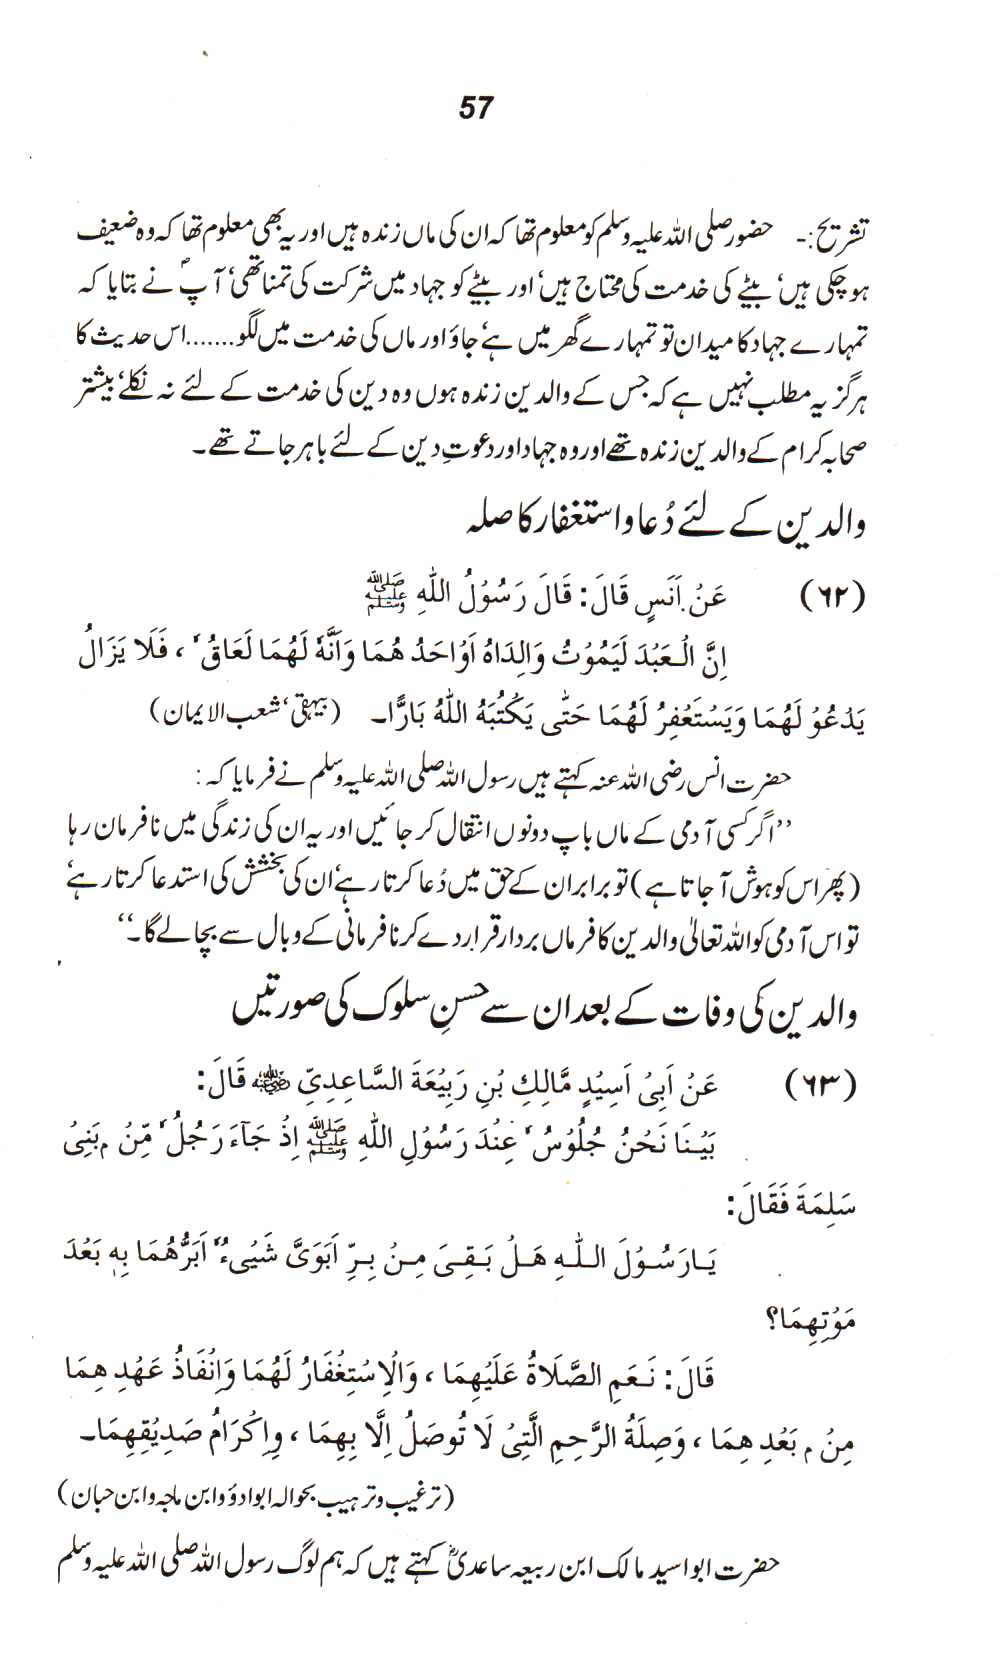 57
تشریح:۔ حضور صلی اللہ علیہ وسلم کو معلوم تھا کہ ان کی ماں زندہ ہیں اور یہ بھی معلوم تھا کہ وہ ضعیف
ہو چکی ہیں، بیٹے کی خدمت کی محتاج ہیں، اور بیٹے کو جہاد میں شرکت کی تمنا تھی، آپؐ نے بتایا کہ
تمہارے جہاد کا میدان تو تمہارے گھر میں ہے، جاؤ اور ماں کی خدمت میں لگو.......اس حدیث کا
ہرگز یہ مطلب نہیں ہے کہ جس کے والدین زندہ ہوں وہ دین کی خدمت کے لئے نہ نکلے، بیشتر
صحابہ کرام کے والدین زندہ تھے اور وہ جہاد اور دعوتِ دین کے لئے باہر جاتے تھے۔
والدین کے لئے دُعا و استغفار کا صلہ
(٦٢) عَنْ اَنَسٍ قَالَ: قَالَ رَسُوْلُ اللّٰهِ ﷺ
اِنَّ الْعَبْدَ لَيَمُوْتُ وَالِدَاهُ اَوْاَحَدُ هُمَا وَاَنَّهٗ لَهُمَا لَعَاقٌ، فَلَا يَزَالُ
يَدْعُوْ لَهُمَا وَيَسْتَغْفِرُ لَهُمَا حَتّٰى يَكْتُبَهُ اللّٰهُ بَارًّا۔ (بیہقی، شعب الایمان)
حضرت انس رضی اللہ عنہ کہتے ہیں رسول اللہ صلی اللہ علیہ وسلم نے فرمایا کہ:
’’اگر کسی آدمی کے ماں باپ دونوں انتقال کر جائیں اور یہ ان کی زندگی میں نافرمان رہا
(پھر اس کو ہوش آجاتا ہے) تو برابر ان کے حق میں دُعا کرتا رہے، ان کی بخشش کی استدعا کرتا رہے،
تو اس آدمی کو اللہ تعالیٰ والدین کا فرماں بردار قرار دے کر نافرمانی کے وبال سے بچا لے گا۔‘‘
والدین کی وفات کے بعد ان سے حسنِ سلوک کی صورتیں
(٦٣) عَنْ اَبِىْ اَسِيْدٍ مَّالِكِ بْنِ رَبِيْعَةَ السَّاعِدِىِّ ؓ قَالَ:
بَيْنَا نَحْنُ جُلُوْسٌ عِنْدَ رَسُوْلِ اللّٰهِ ﷺ اِذْ جَآءَ رَجُلٌ مِّنْ ۢ بَنِىْ
سَلِمَةَ فَقَالَ:
يَارَسُوْلَ اللّٰهِ هَلْ بَقِىَ مِنْ بِرِّ اَبَوَىَّ شَيْىءٌ اَبَرُّهُمَا بِهٖ بَعْدَ
مَوْتِهِمَا؟
قَالَ: نَعَمِ الصَّلَاةُ عَلَيْهِمَا، وَالْاِسْتِغْفَارُ لَهُمَا وَاِنْفَاذُ عَهْدِ هِمَا
مِنْ ۢ بَعْدِ هِمَا، وَصِلَةُ الرَّحِمِ الَّتِىْ لَا تُوصَلُ اِلَّا بِهِمَا، وِاِكْرَامُ صَدِيْقِهِمَا۔
(ترغیب و ترہیب بحوالہ ابوداؤد و ابن ماجہ و ابن حبان)
حضرت ابو اسید مالک ابن ربیعہ ساعدیؓ کہتے ہیں کہ ہم لوگ رسول اللہ صلی اللہ علیہ وسلم